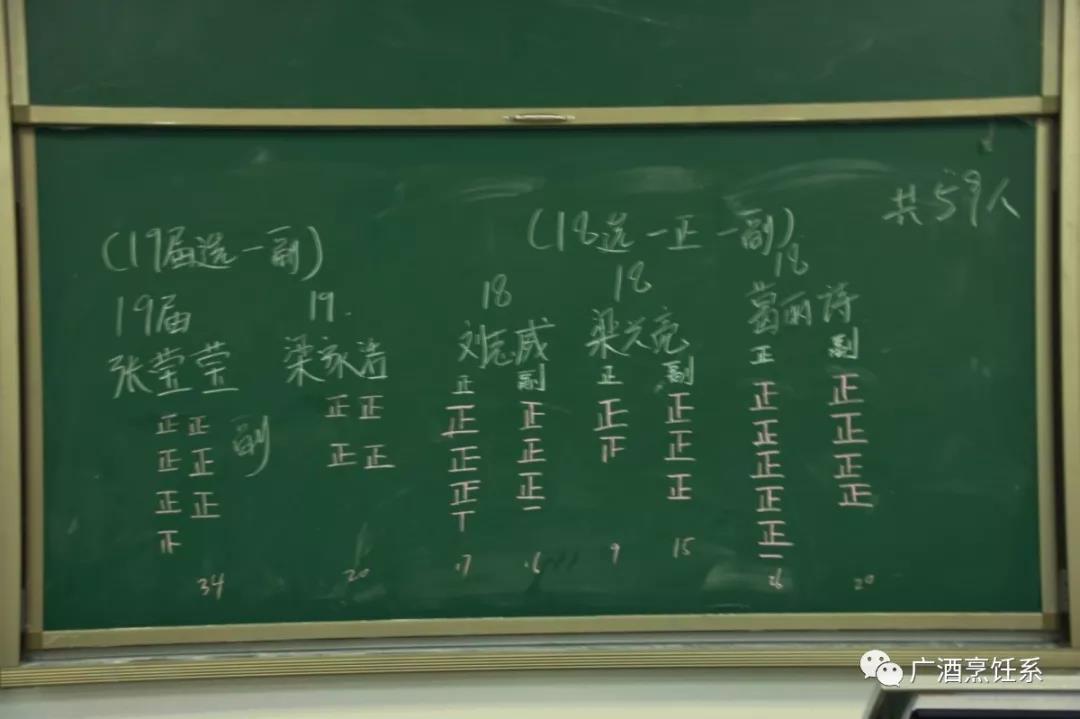 共59人
(19届选一副)
(18选一正一副)
19届
19.
18
18
18
张莹莹
梁家浩
刘志威
梁兴亮
葛丽诗
正
副
正
副
正
副
正正
正正
正
正
正
正
正
正
正正
副
正正
正
正
正
正
正
正
正正
正
正
正
正
正
正
正
正
一
34
20
17
16
9
15
26
20
广酒烹饪系